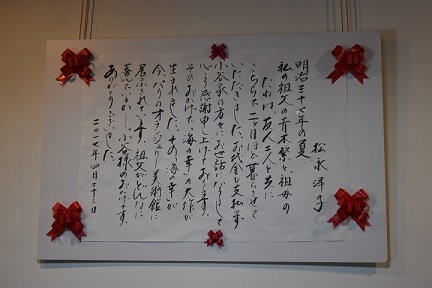 松永洋子
明治三十七年の夏
私の祖父の青木繁と、祖母の
たねは、友人二人と共に
こちらで二ヶ月ほど暮らさせて
いただきました。お代金も支払わず
小谷家の方々にお世話になりまして
心より感謝申し上げております。
そのおかげで、「海の幸」の大作が
生まれました。その「海の幸」が
今、パリのオランジュリー美術館に
展示されています。祖父がどんなに
喜んでいるか……小谷様のおかげです。
ありがとうございました。
二〇一七年四月二十三日